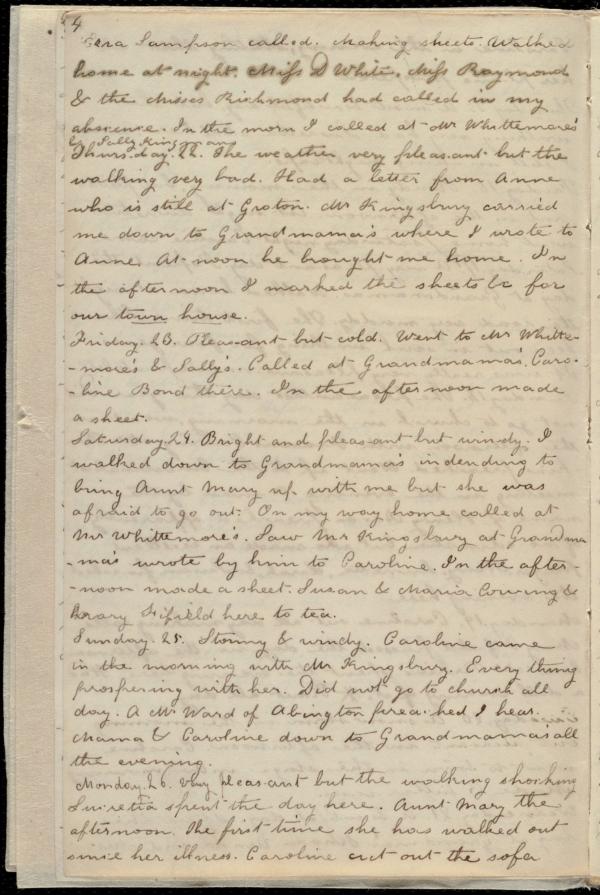 4
Ezra Sampson called. Making sheets. Walked
home at night. Miss D White, Miss Raymond
& the Misses Richmond had called in my
abscence. In the morn I called at Mr Whittemore's
& Sally Kingman
Thursday. 22. The weather very pleasant but the
walking very bad. Had a letter from Anne
who is still at Groton. Mr Kingsbury carried
me down to Grandmama's where I wrote to
Anne. At noon he brought me home. In
the afternoon I marked the sheets &c for
our town house.
Friday. 23. Pleasant but cold. Went to Mr Whitte-
-more's & Sally's. Called at Grandmama's. Caro-
-line Bond there. In the afternoon made
a sheet.
Saturday. 24. Bright and pleasant but windy. I
walked down to Grandmama's indending to
bring Aunt Mary up with me but she was
afraid to go out. On my way home called at
Mr Whittemore's. Saw Mr Kingsbury at Grandma
-ma's wrote by him to Caroline. In the after-
-noon made a sheet. Susan & Maria Cowing &
Mary Fifield here to tea.
Sunday. 25. Stormy & windy. Caroline came
in the morning with Mr Kingsbury. Every thing
prospering with her. Did not go to church all
day. A Mr Ward of Abington preached I hear.
Mama & Caroline down to Grandmama's all
the evening.
Monday. 26. Very pleasant but the walking shocking
Lucretia spent the day here. Aunt Mary the
afternoon. The first time she has walked out
since her illness. Caroline cut out the sofa